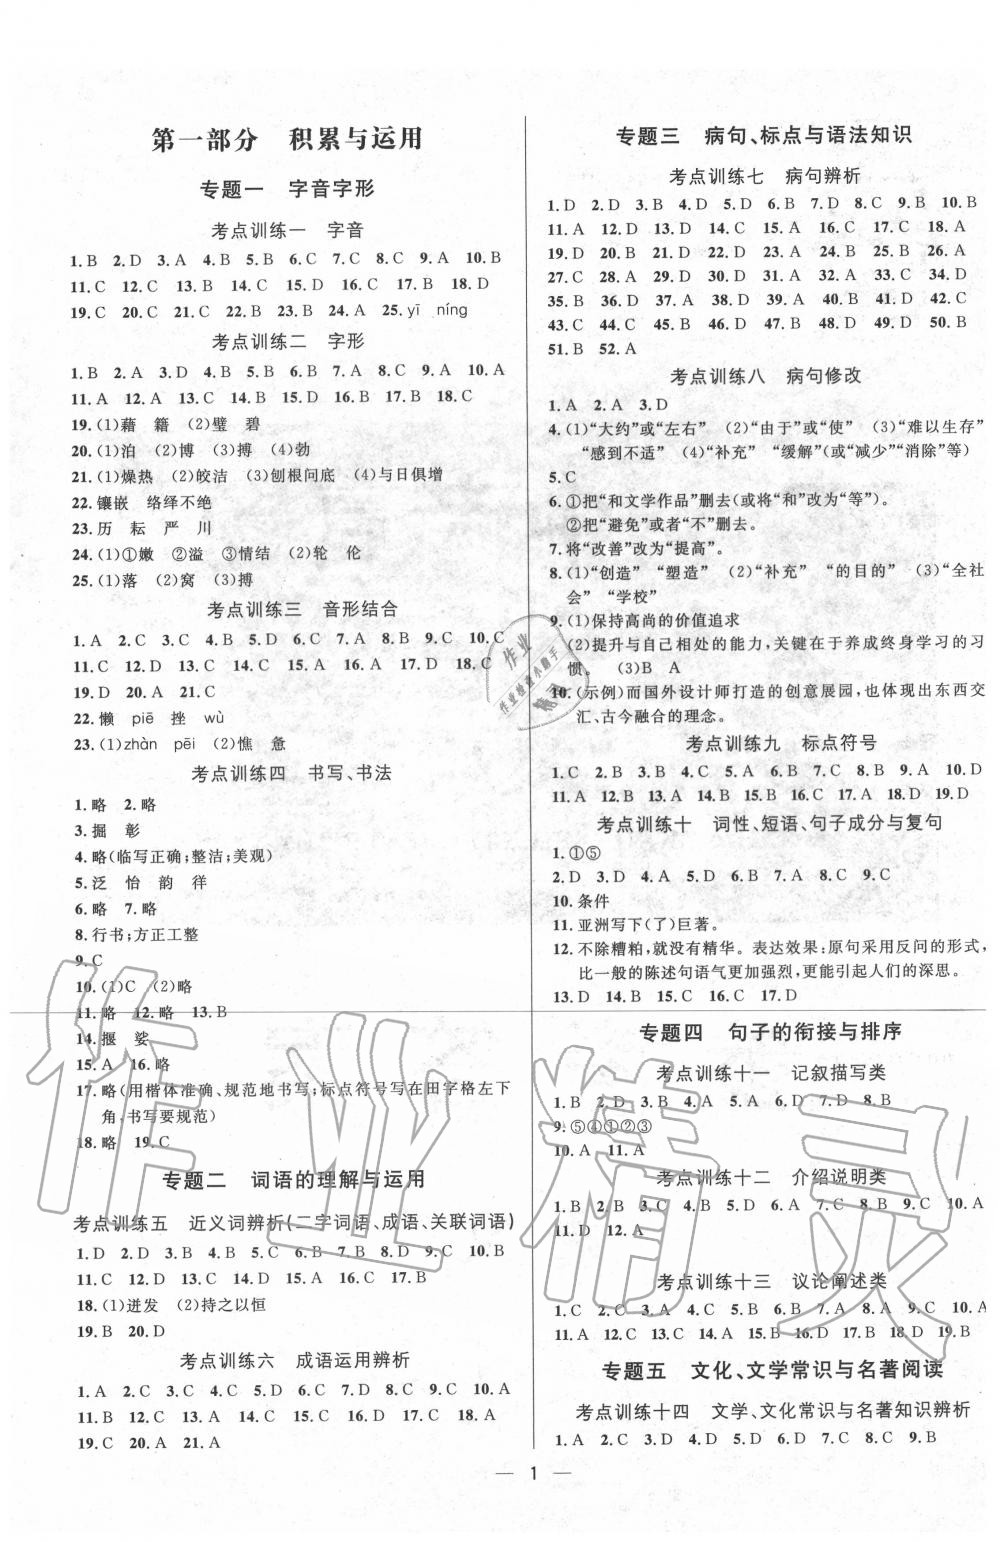 第一部分 积累与运用
专题一 字音字形
考点训练一 字音
1.B 2.D 3.A 4.B 5.B 6.C 7.B 8.C 9.A 10.B
11.C 12.C 13.B 14.C 15.D 16.D 17.B 18.D
19.C 20.C 21.C 22.B 23.B 24.A 25.yī níng
考点训练二 字形
1.B 2.A 3.D 4.C 5.B 6.D 7.B 8.C 9.D 10.C
11.A 12.A 13.C 14.D 15.B 16.B 17.B 18.C
19.(1)藉 籍 (2)璧 碧
20.(1)泊 (2)博 (3)搏 (4)勃
21.(1)燥热 (2)皎洁 (3)刨根问底 (4)与日俱增
22.镶嵌 络绎不绝
23.历 耘 严 川
24.(1)①嫩 ②溢 ③情结 (2)轮 伦
25.(1)落 (2)窝 (3)搏
考点训练三 音形结合
1.A 2.C 3.C 4.B 5.D 6.C 7.A 8.B 9.C 10.C
11.C 12.D 13.C 14.B 15.B 16.D 17.D 18.C
19.D 20.A 21.C
22.懒 piē 挫 wù
23.(1)zhàn pēi (2)憔 惫
考点训练四 书写、书法
1.略 2.略
3.掘 彰
4.略(临写正确;整洁;美观)
5.泛 怡 韵 徉
6.略 7.略
8.行书;方正工整
9.C
10.(1)C (2)略
11.略 12.略 13.B
14.揠 娑
15.A 16.略
17.略(用楷体准确、规范地书写;标点符号写在田字格左下
角,书写要规范)
18.略 19.C
专题二 词语的理解与运用
考点训练五 近义词辨析(二字词语、成语、关联词语)
1.D 2.D 3.D 4.C 5.C 6.B 7.B 8.D 9.C 10.B
11.C 12.C 13.D 14.D 15.C 16.A 17.C
18.(1)迸发 (2)持之以恒
19.B 20.D
考点训练六 成语运用辨析
1.A 2.C 3.C 4.C 5.C 6.C 7.C 8.D 9.C 10.A
11.B 12.C 13.A 14.D 15.C 16.C 17.C 18.A
19.C 20.A 21.A
专题三 病句、标点与语法知识
考点训练七 病句辨析
1.D 2.D 3.B 4.D 5.D 6.B 7.D 8.C 9.B 10.B
11.A 12.D 13.D 14.C 15.C 16.C 17.C 18.A
19.D 20.B 21.D 22.D 23.A 24.B 25.B 26.A
27.C 28.A 29.A 30.D 31.A 32.A 33.C 34.D
35.B 36.B 37.C 38.D 39.A 40.B 41.D 42.C
43.C 44.C 45.B 46.D 47.A 48.D 49.D 50.B
51.B 52.A
考点训练八 病句修改
1.A 2.A 3.D
4.(1)“大约”或“左右” (2)“由于”或“使” (3)“难以生存”
“感到不适” (4)“补充” “缓解”(或“减少”“消除”等)
5.C
6.①把“和文学作品”删去(或将“和”改为“等”)。
②把“避免”或者“不”删去。
7.将“改善”改为“提高”。
8.(1)“创造” “塑造” (2)“补充” “的目的” (3)“全社
会” “学校”
9.(1)保持高尚的价值追求
(2)提升与自己相处的能力,关键在于养成终身学习的习
惯。 (3)B A
10.(示例)而国外设计师打造的创意展园,也体现出东西交
汇、古今融合的理念。
考点训练九 标点符号
1.C 2.B 3.B 4.C 5.D 6.B 7.C 8.B 9.A 10.D
11.A 12.B 13.D 14.C 15.C 16.B 17.A 18.D 19.D
考点训练十 词性、短语、句子成分与复句
1.①⑤
2.D 3.D 4.A 5.C 6.D 7.A 8.D 9.C
10.条件
11.亚洲写下(了)巨著。
12.不除糟粕,就没有精华。表达效果:原句采用反问的形式,
比一般的陈述句语气更加强烈,更能引起人们的深思。
13.D 14.B 15.B 16.C 17.D
专题四 句子的衔接与排序
考点训练十一 记叙描写类
1.B 2.D 3.B 4.A 5.A 6.D 7.D 8.B
9.⑤④①②③
10.A 11.A
考点训练十二 介绍说明类
1.B 2.B 3.C 4.C 5.B 6.D 7.A 8.B 9.C 10.A
11.D 12.A
考点训练十三 议论阐述类
1.C 2.C 3.A 4.C 5.A 6.B 7.A 8.A 9.C 10.A
11.A 12.C 13.B 14.C 15.B 16.A 17.D 18.D 19.B
专题五 文化、文学常识与名著阅读
考点训练十四 文学、文化常识与名著知识辨析
1.A 2.C 3.C 4.A 5.D 6.B 7.C 8.C 9.B
1
作业精灵